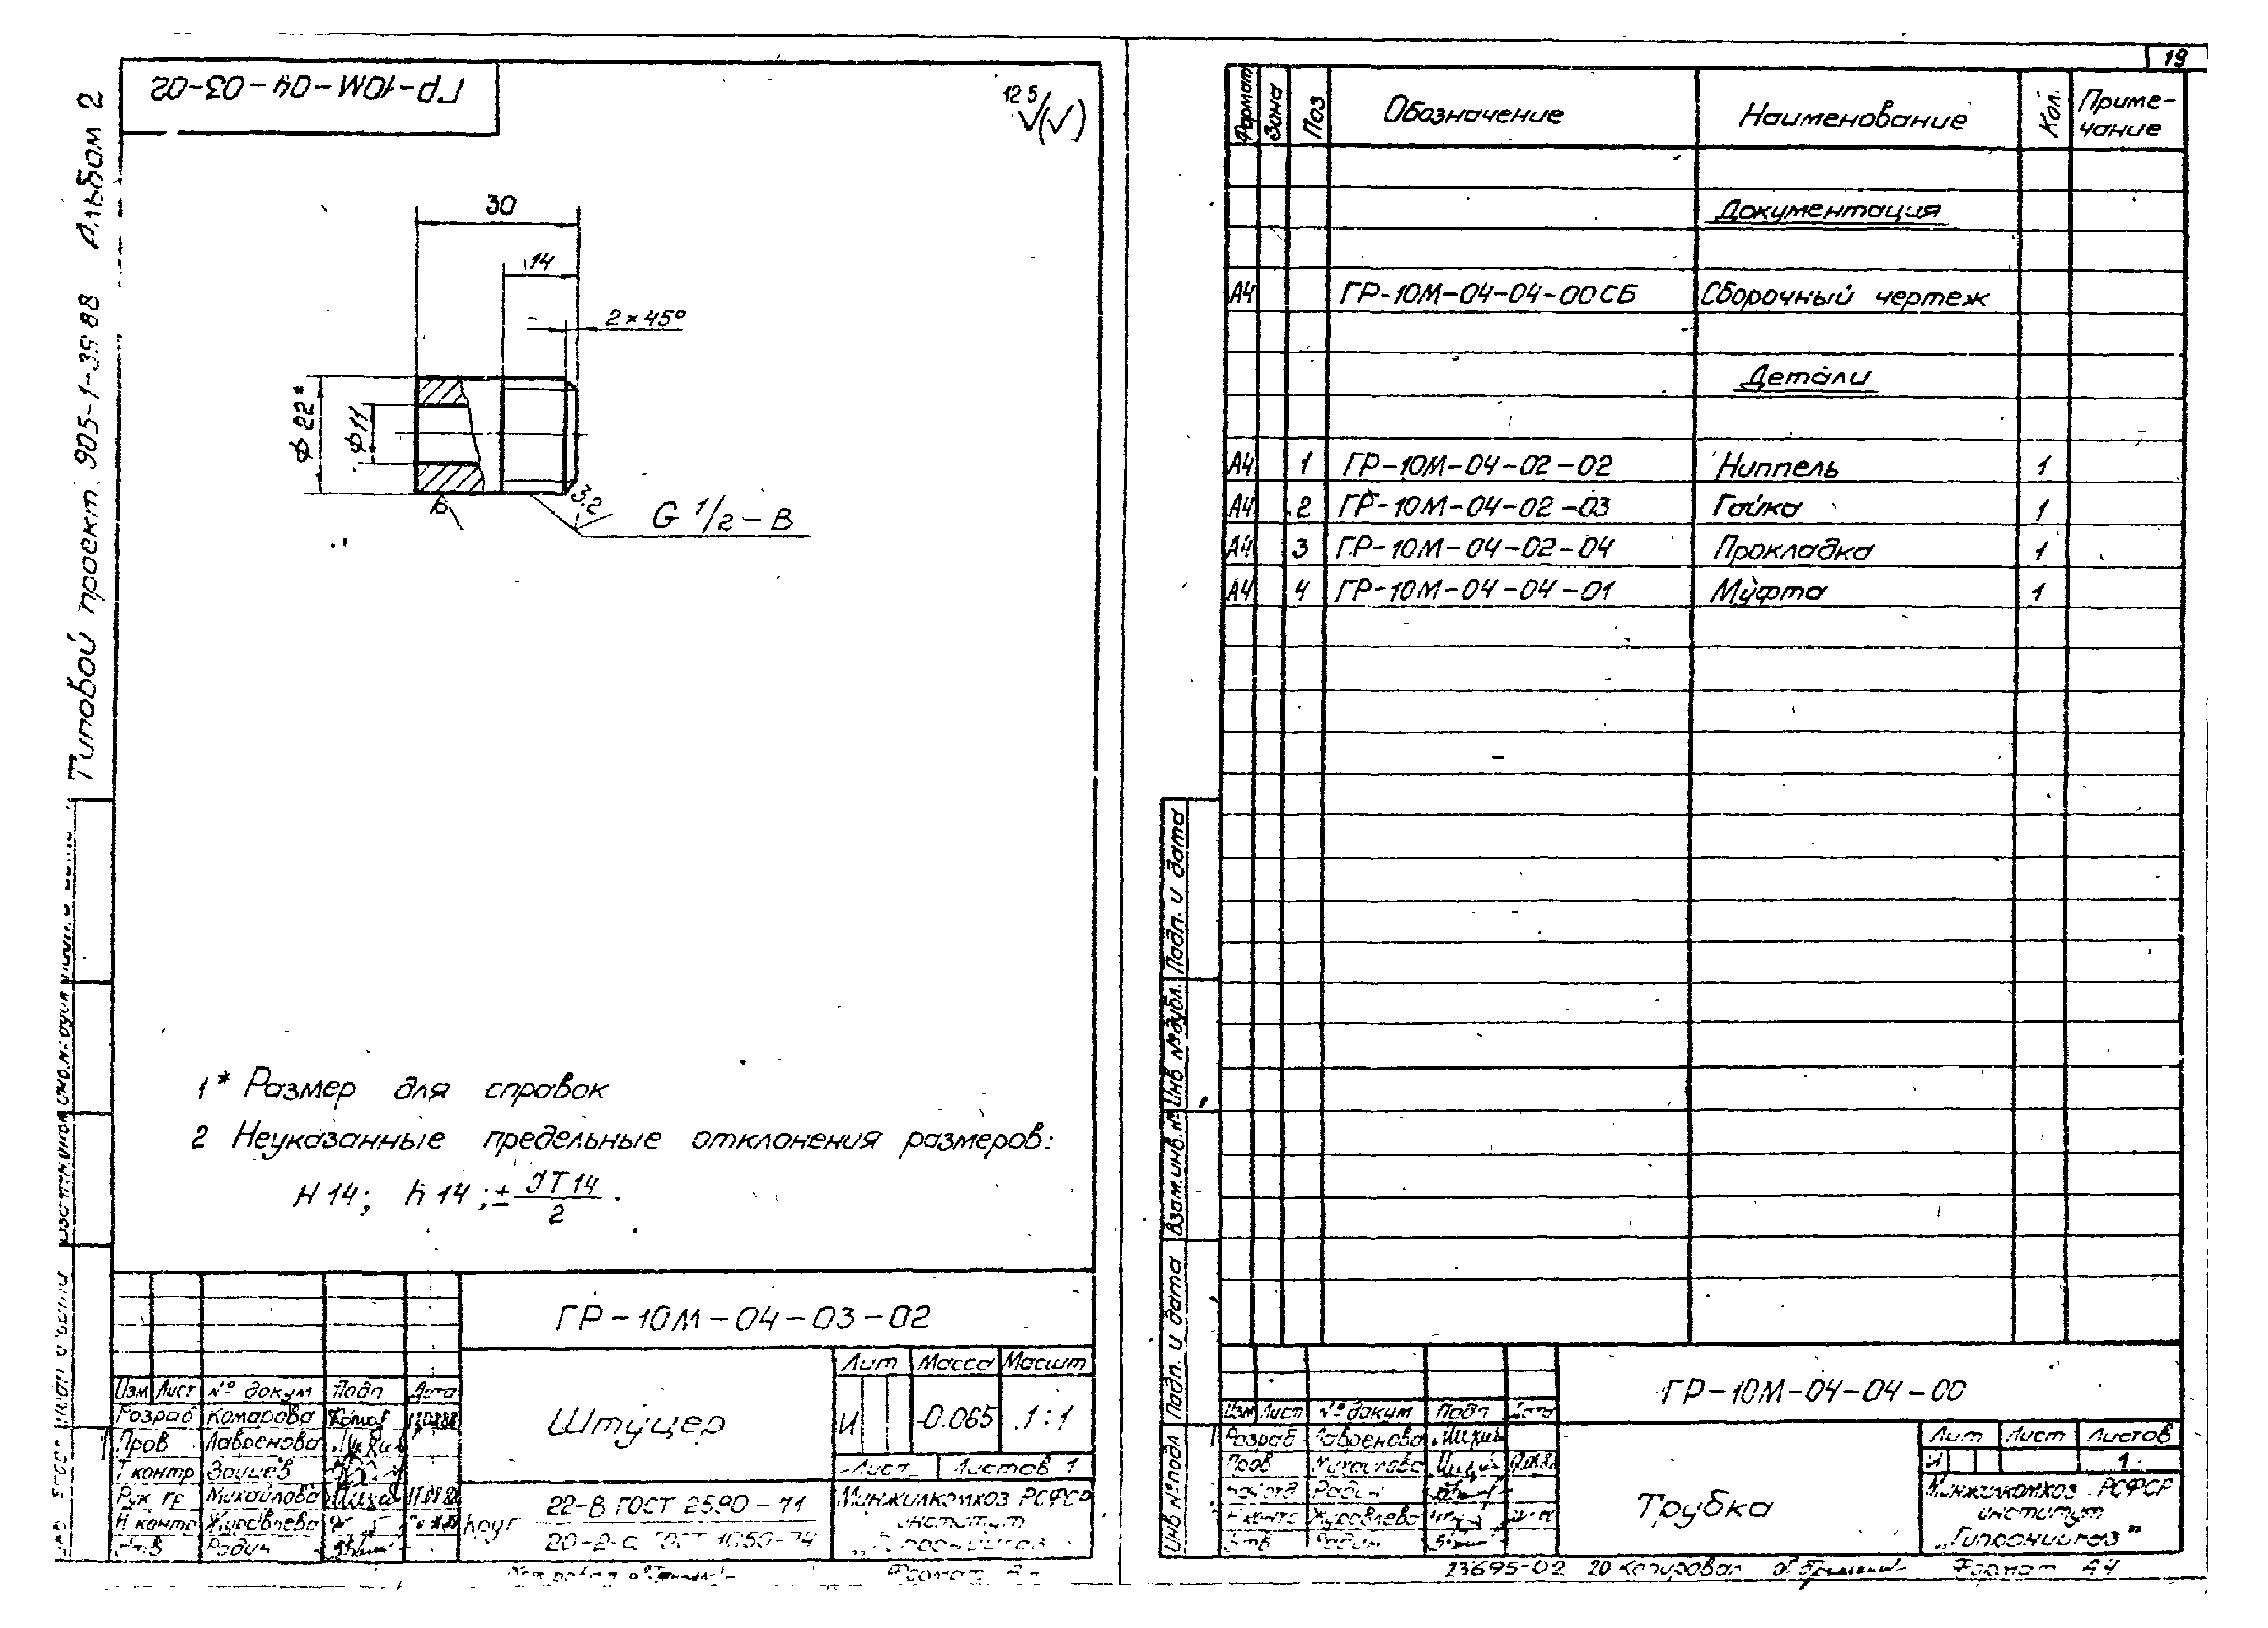 ГР-10М-04-03-02
Типовой проект 905-1-39.88 Альбом 2
12 5 (√)
30
14
2×45°
ф 22*
ф 11
3.2
G 1/2 - В
1* Размер для справок
2 Неуказанные предельные отклонения размеров:
H 14; h 14; ± JT 14 / 2 .
ГР-10М-04-03-02
Лит Масса Масшт
Штуцер
И 0.065 1:1
Лист Листов 1
Изм Лист № докум Подп Дата
Разраб Комарова
Пров Лавренова
Т контр Зайцев
Рук гр Михайлова
Н контр Журавлева
Утв Радин
Круг 22-В ГОСТ 2590-71
20-2-а ГОСТ 1050-74
Минжилкомхоз РСФСР
институт
Формат
19
Формат Зона Поз Обозначение Наименование Кол. Приме-
чание
Документация
А4 ГР-10М-04-04-00СБ Сборочный чертеж
Детали
А4 1 ГР-10М-04-02-02 Ниппель 1
А4 2 ГР-10М-04-02-03 Гайка 1
А4 3 ГР-10М-04-02-04 Прокладка 1
А4 4 ГР-10М-04-04-01 Муфта 1
Инв № подл Подп. и дата Взам.инв.№ Инв № дубл. Подп. и дата
ГР-10М-04-04-00
Изм Лист № докум Подп Дата
Разраб Лавренова
Пров Михайлова
Радин
Н контр Журавлева
Утв Радин
Трубка
Лит Лист Листов
И 1
Минжилкомхоз РСФСР
институт
„Гипрониигаз"
23695-02 20 Копировал Формат А4